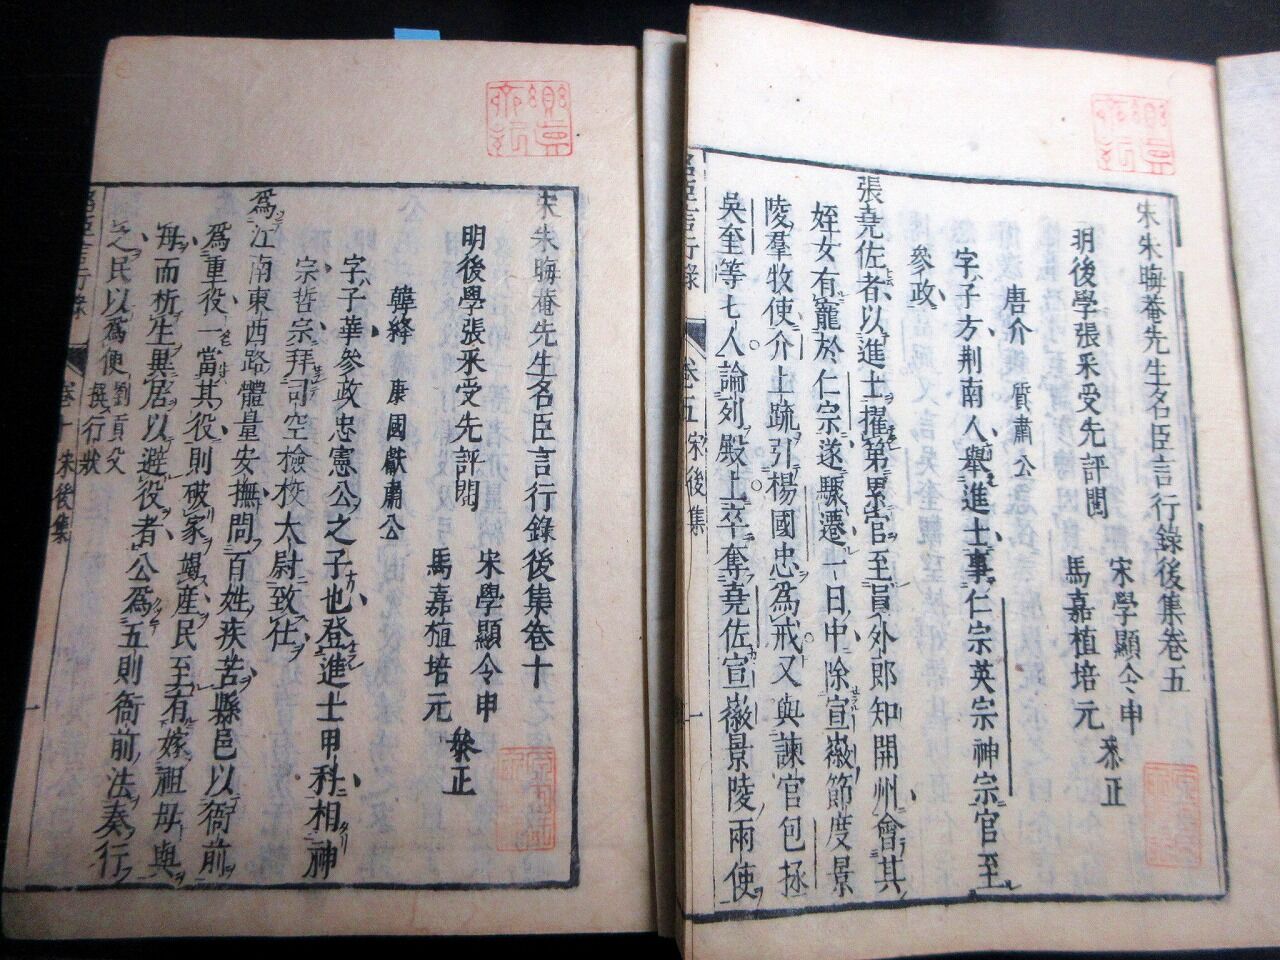 宋朱晦菴先生名臣言行錄後集卷五
宋學顯令申
明後學張采受先評閱
馬嘉植培元
參正
唐介 質肅公
字子方荆南人舉進士事仁宗英宗神宗官至
參政
張堯佐者以進士擢第累官至員外郎知開州會其
姪女有寵於仁宗遂驟遷一日中除宣徽節度景
陵羣牧使介上疏引楊國忠為戒又與諫官包拯
吳奎等七人論列殿上卒奪堯佐宣徽景陵兩使
名臣言行錄 卷五 宋後集 一
宋朱晦菴先生名臣言行錄後集卷十
宋學顯令申
明後學張采受先評閱
馬嘉植培元
參正
韓絳 康國獻肅公
字子華參政忠憲公之子也登進士甲科相神
宗哲宗拜司空檢校太尉致仕
為江南東西路體量安撫問百姓疾苦縣邑以衙前
為重役一當其役則破家竭產民至有嫁祖母與
母而析生異居以避役者公為五則衙前法奏行
之民以為便 劉貢父撰行狀
名臣言行錄 卷十 宋後集 一